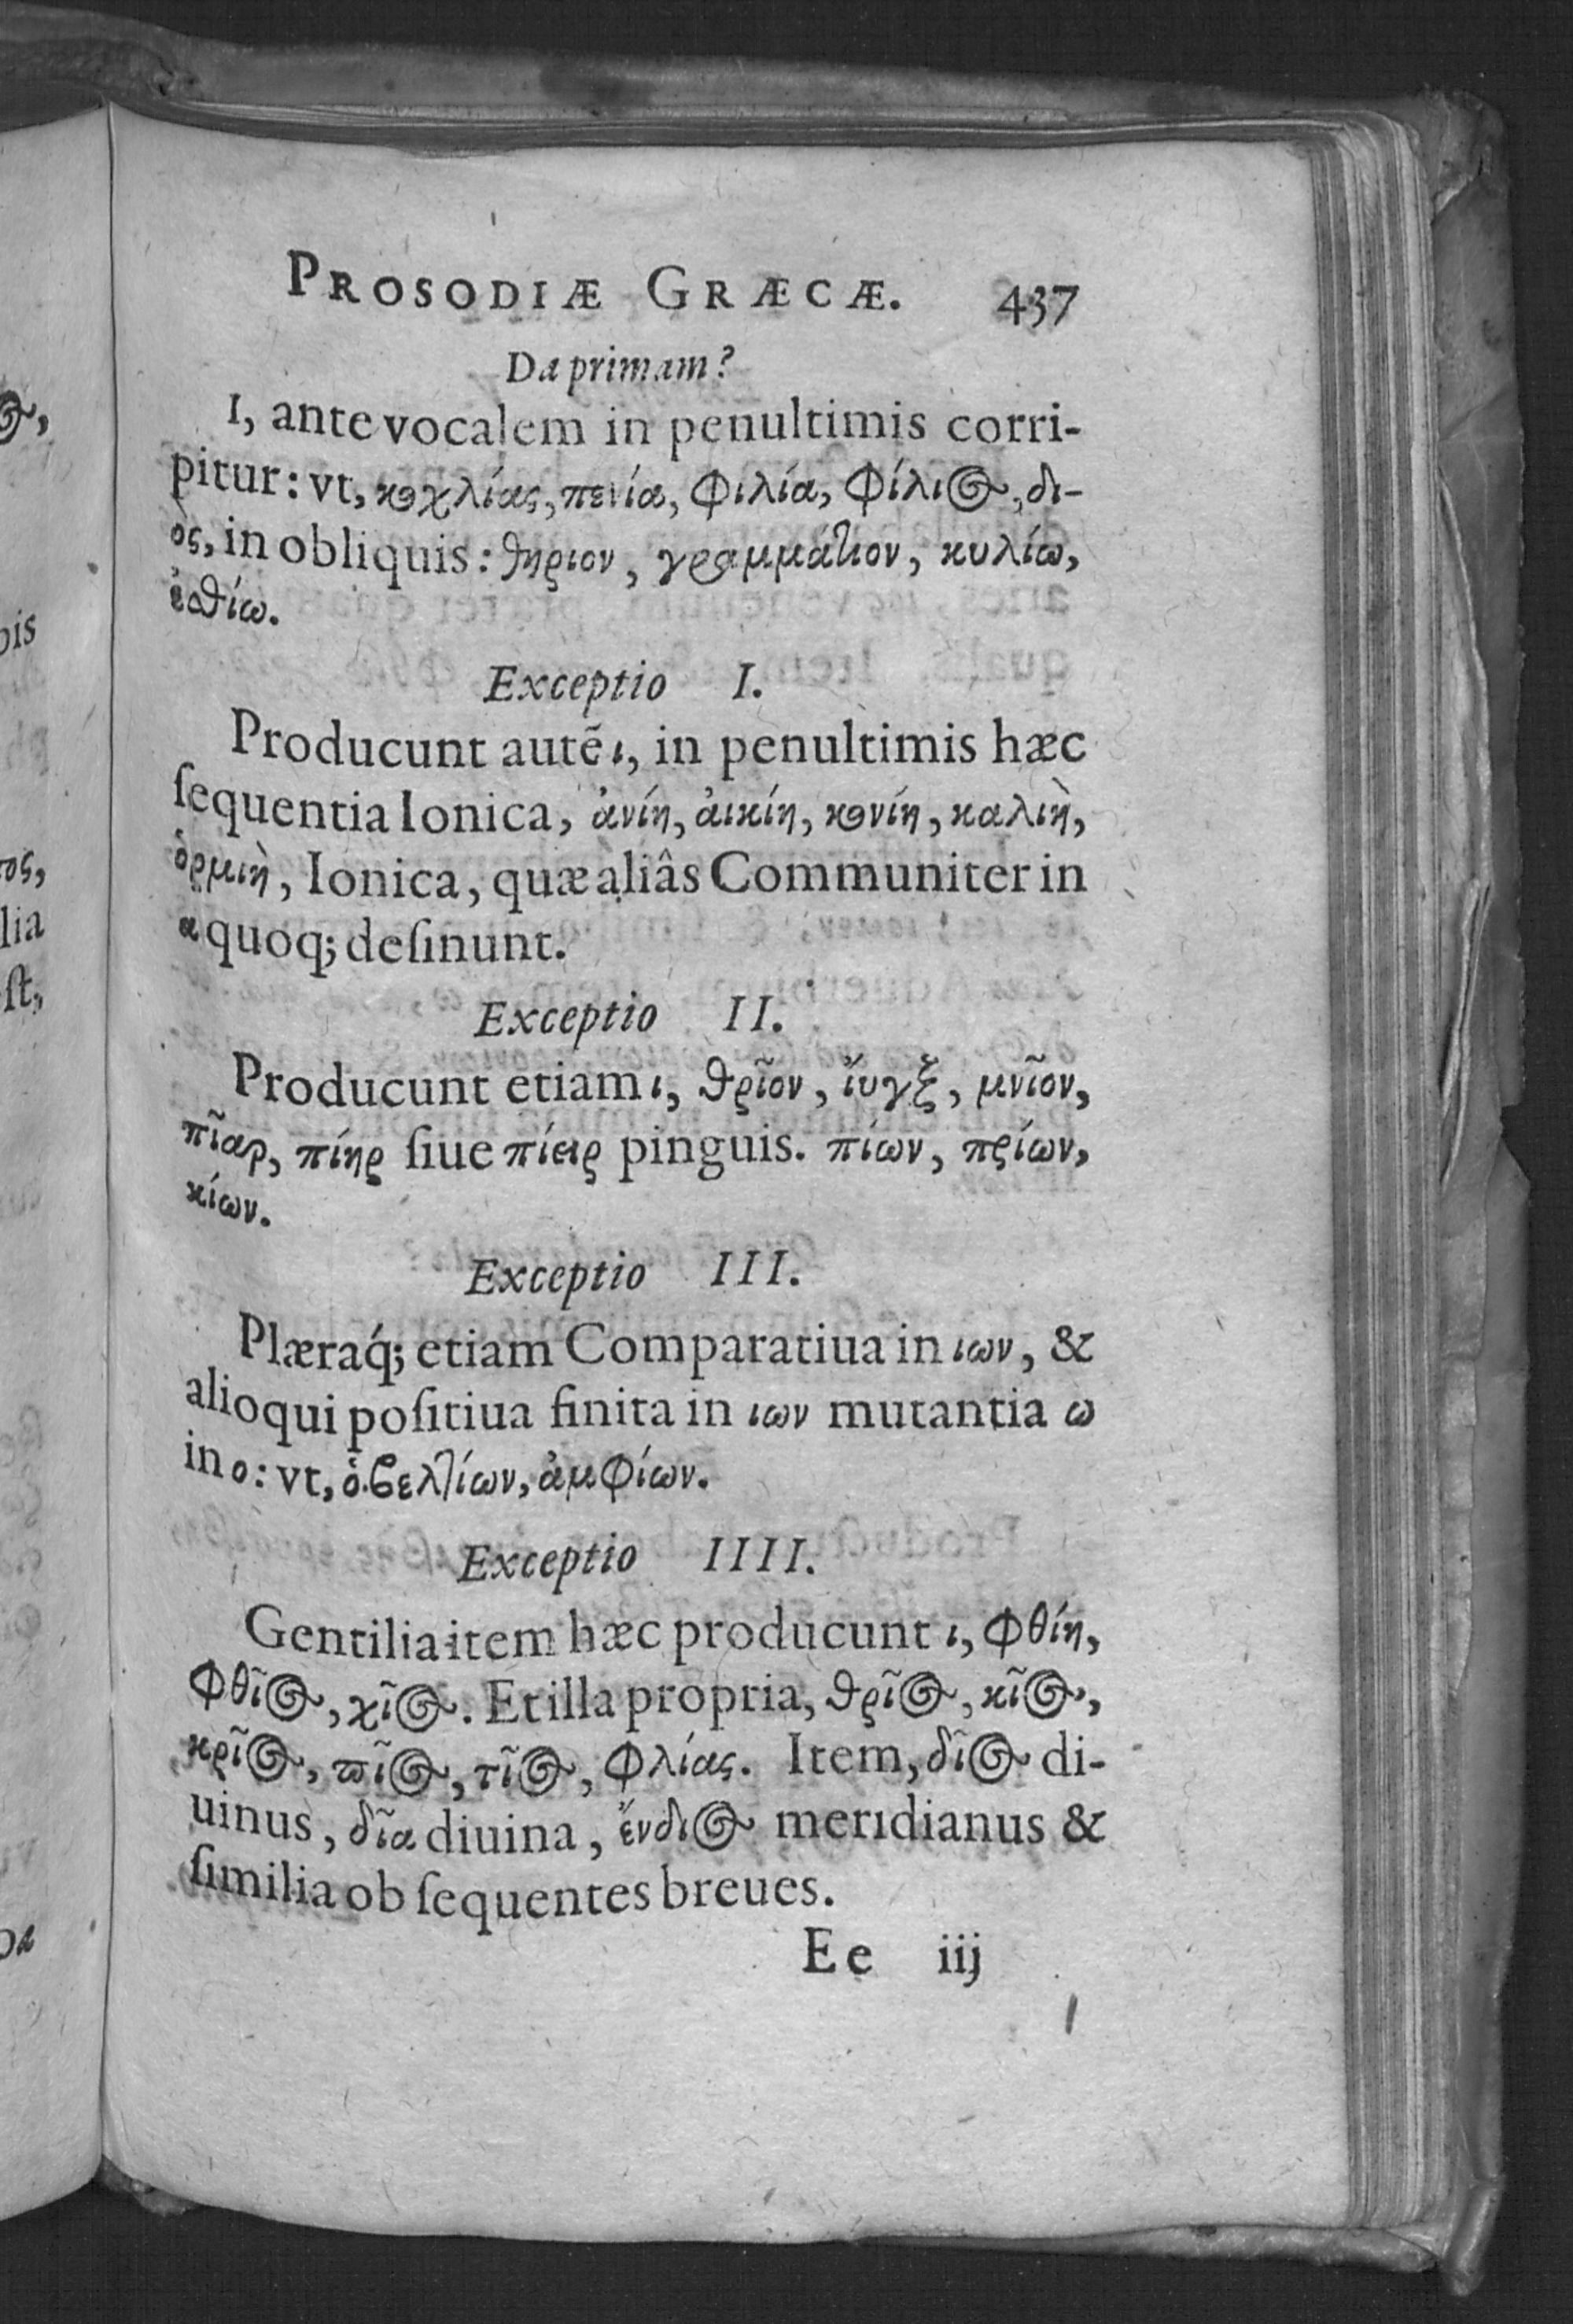 PROSODIÆ GRÆCÆ. 437
Da primam?
I, ante vocalem in penultimis corri-
pitur: vt, κοχλίας, πενία, φιλία, φίλιος, δι-
ὸς, in obliquis: θηριον, γραμμάτιον, κυλίω,
ἐσθίω.
Exceptio I.
Producunt autẽ ι, in penultimis hæc
ſequentia Ionica, ἀνίη, ἀικίη, κονίη, καλιὴ,
ὁρμιὴ, Ionica, quæ aliâs Communiter in
α quoq; deſinunt.
Exceptio II.
Producunt etiam ι, θρῖον, ἴυγξ, μνῖον,
πῖαρ, πίης ſiue πίεις pinguis. πίων, πρίων,
κίων.
Exceptio III.
Plæraq́; etiam Comparatiua in ιων, &
alioqui poſitiua finita in ιων mutantia ω
in ο: vt, ὁ βελτίων, ἀμφίων.
Exceptio IIII.
Gentilia item hæc producunt ι, Φθίη,
Φθῖος, χῖος. Et illa propria, θρῖος, κῖος,
κρῖος, πῖος, τῖος, Φλίας. Item, δῖος di-
uinus, δῖα diuina, ἔνδιος meridianus &
ſimilia ob ſequentes breues.
Ee iij